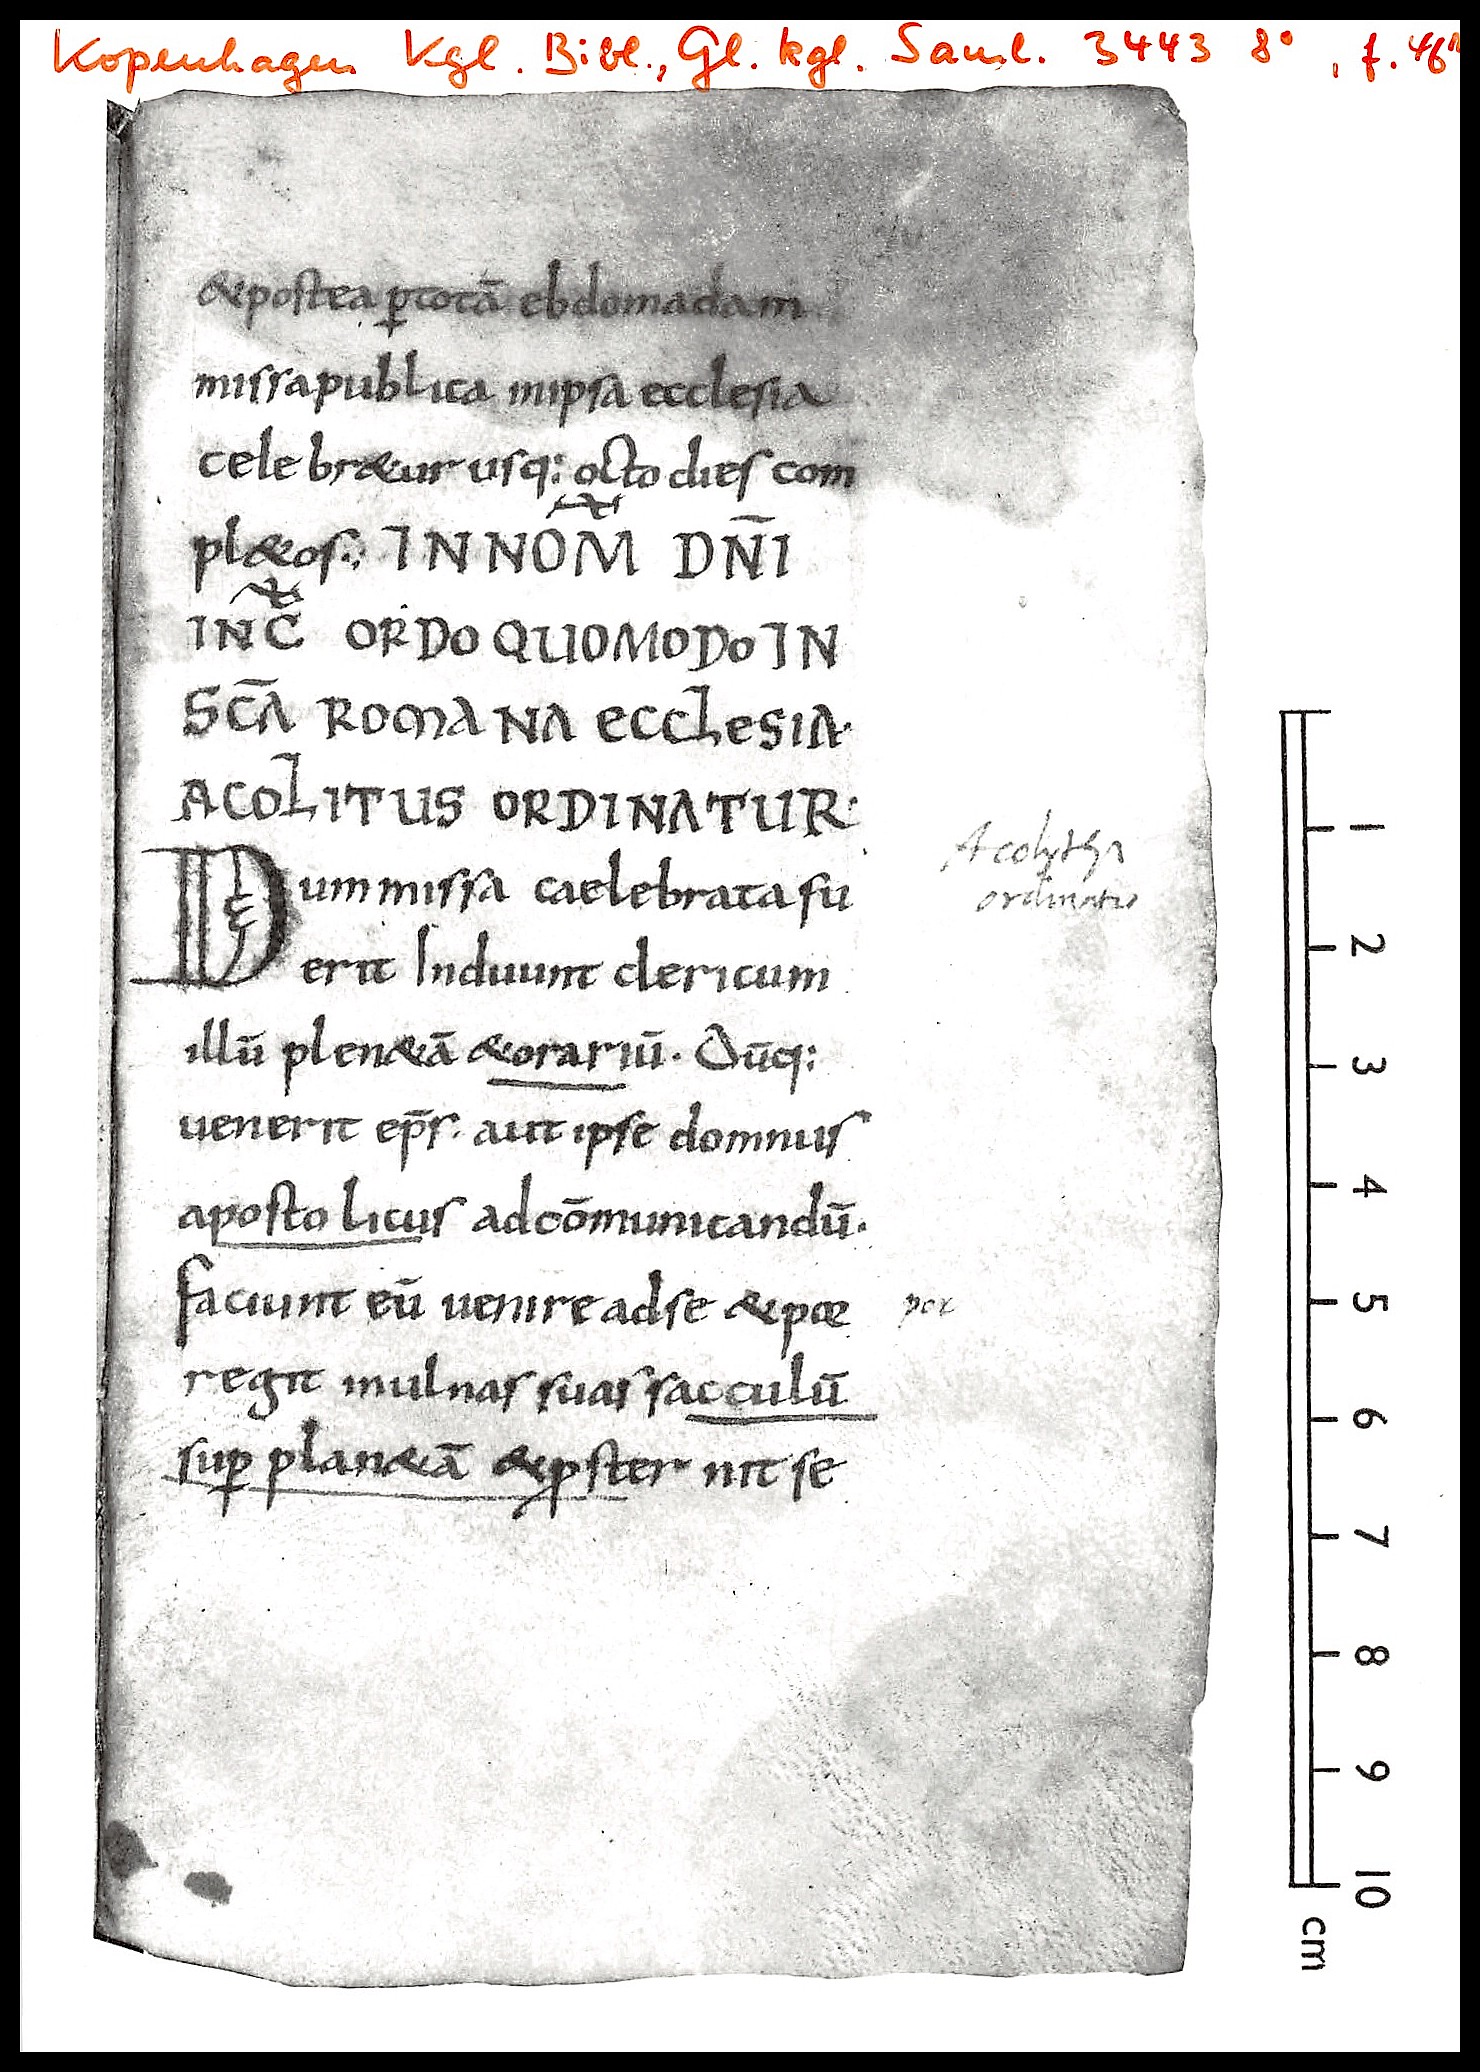 Kopenhagen Kgl. Bibl., Gl. kgl. Saml. 3443 8°, f. 46r
&postea ꝑtotā ebdomadam
missapublica inipsa ecclesia
celebr&ur usq: octo dies com
pl&os·; IN NOM̄ DN̄I
INC̄ ORDO QUOMODO IN
SC̄A ROMANA ECCLESIA·
ACOLITUS ORDINATUR·
Dum missa caelebrata fu
erit Induunt clericum
illū plen&ā &orariū. Cūq:
uenerit ep̄s. aut ipse domnus
apostolicus adcōmunicandū.
faciunt eū uenire adse &poe
regit inulnas suas sacculū
suꝑ plan&ā &ꝓsternit se
Acolytha
ordinatio
por
1
2
3
4
5
6
7
8
9
10
cm